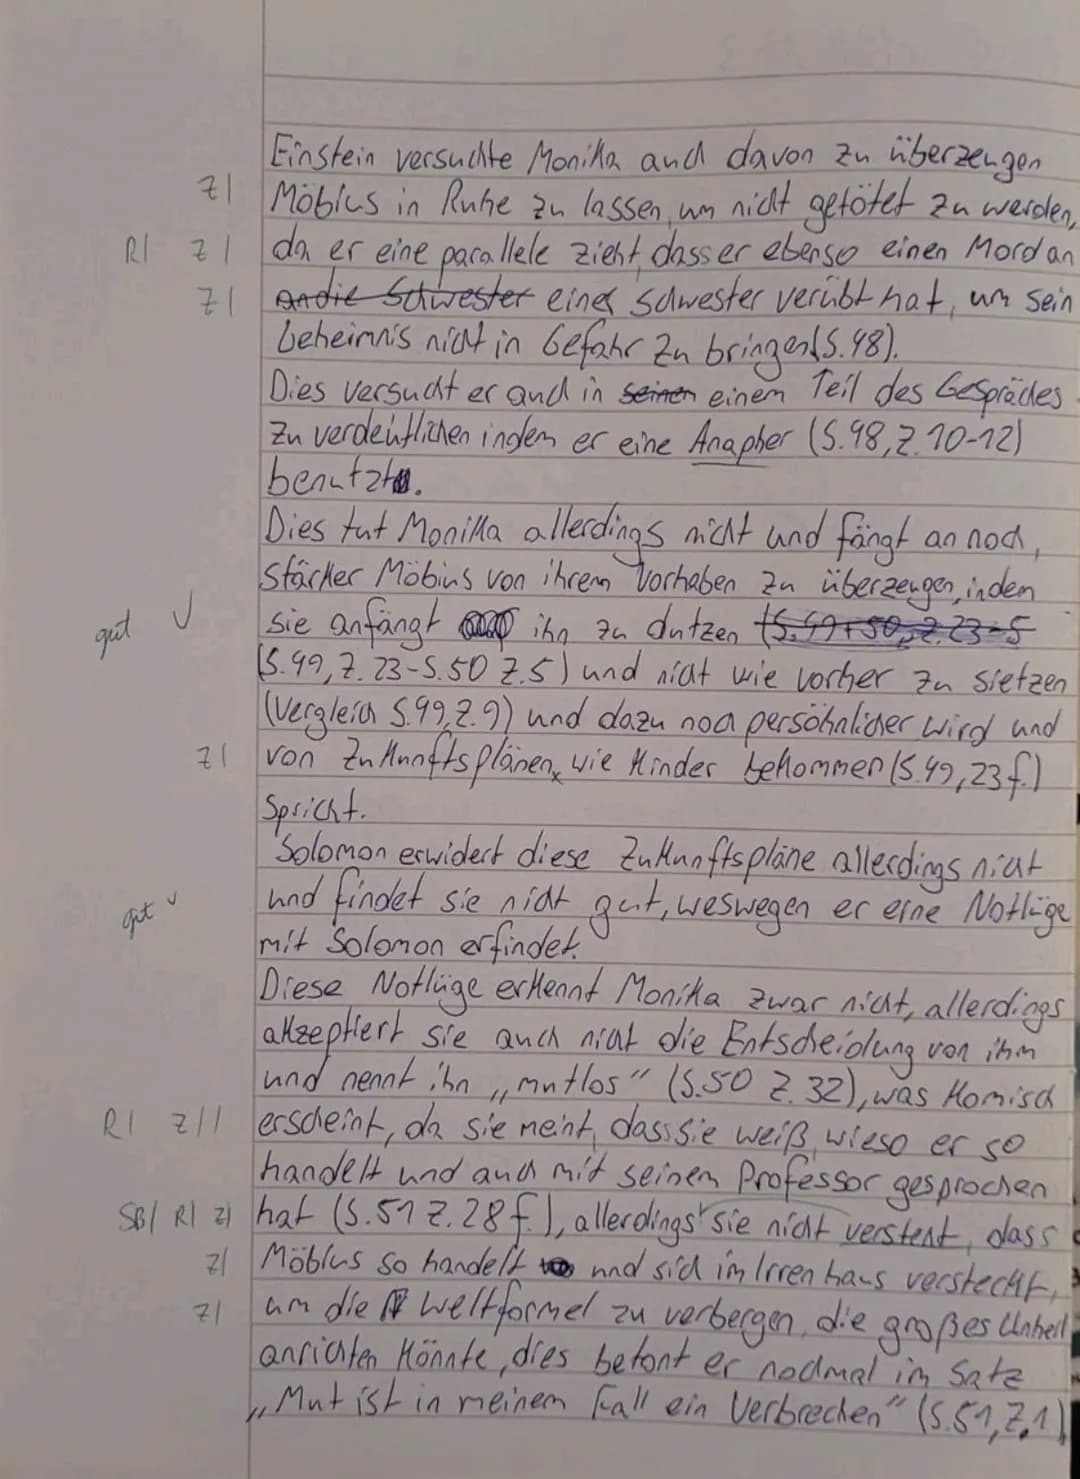 Einstein versuchte Monika auch davon zu überzeugen
Z| Möbius in Ruhe zu lassen, um nicht getötet zu werden,
R| Z| da er eine parallele zieht, dass er ebenso einen Mord an
Z| an die Schwester einer Schwester verübt hat, um sein
Geheimnis nicht in Gefahr zu bringen (S.48).
Dies versucht er auch in seinen einem Teil des Gespräches
zu verdeutlichen indem er eine Anapher (S.48, Z.10-12)
benutzt.
Dies tut Monika allerdings nicht und fängt an noch,
stärker Möbius von ihrem Vorhaben zu überzeugen, indem
gut ✓ sie anfängt ihn zu dutzen (S.49+50, Z.23-5
(S.49, Z.23-S.50 Z.5) und nicht wie vorher zu sietzen
(Vergleich S.49, Z.9)) und dazu noch persöhnlicher wird und
Z| von Zukunftsplänen, wie Kinder bekommen (S.49, 23f.)
Spricht.
Solomon erwidert diese Zukunftspläne allerdings nicht
gut ✓ und findet sie nicht gut, weswegen er eine Notlüge
mit Solomon erfindet.
Diese Notlüge erkennt Monika zwar nicht, allerdings
akzeptiert sie auch nicht die Entscheidung von ihm
und nennt ihn „mutlos“ (S.50 Z.32), was Komisch
R| Z|| erscheint, da sie meint, dass sie weiß, wieso er so
handelt und auch mit seinem Professor gesprochen
SB| R| Z| hat (S.51 Z.28f.), allerdings sie nicht versteht, dass
Z| Möbius so handelt und sich im Irrenhaus versteckt,
Z| um die Weltformel zu verbergen, die großes Unheil
anrichten Könnte, dies betont er nochmal im Satz
„Mut ist in meinem Fall ein Verbrechen“ (S.51, Z.1)